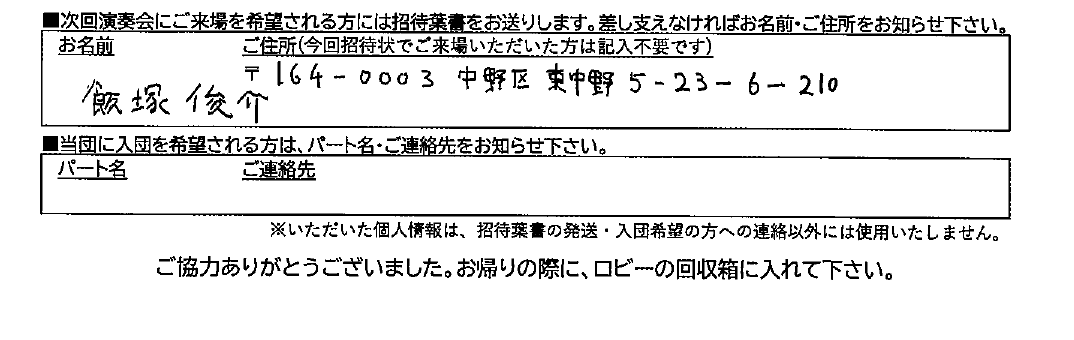 ■次回演奏会にご来場を希望される方には招待葉書をお送りします。差し支えなければお名前・ご住所をお知らせ下さい。
お名前 ご住所(今回招待状でご来場いただいた方は記入不要です)
〒164-0003 中野区 東中野 5-23-6-210
飯塚 俊介
■当団に入団を希望される方は、パート名・ご連絡先をお知らせ下さい。
パート名 ご連絡先
※いただいた個人情報は、招待葉書の発送・入団希望の方への連絡以外には使用いたしません。
ご協力ありがとうございました。お帰りの際に、ロビーの回収箱に入れて下さい。